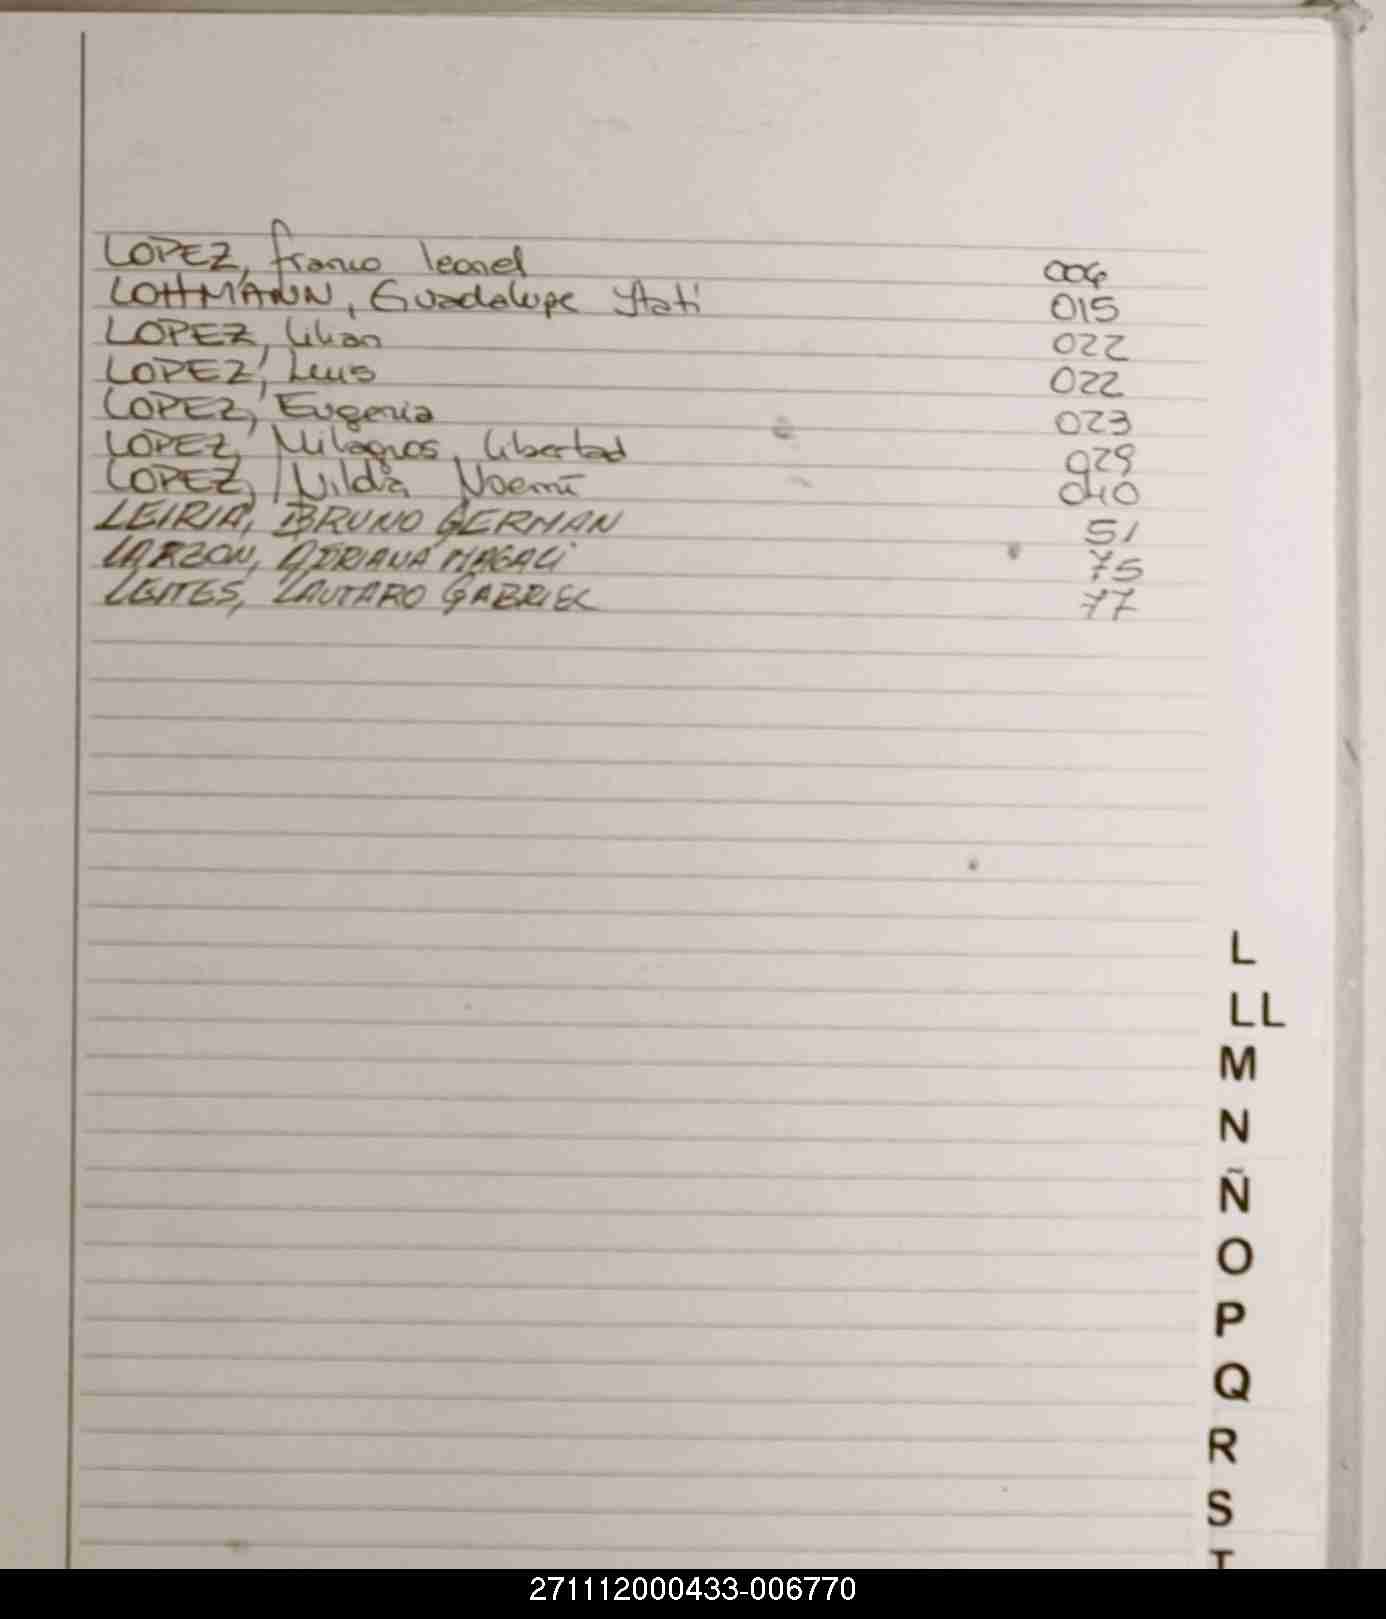 LOPEZ, franco leonel 006
LOHMANN, Guadalupe Itati 015
LOPEZ, lilian 022
LOPEZ, Luis 022
LOPEZ, Eugenia 023
LOPEZ, Milagros, libertad 029
LOPEZ, Nilda, Noemí 040
LEIRIA, BRUNO GERMAN 51
LARZON, ADRIANA MAGALI 75
LEITES, LAUTARO GABRIEL 77
L
LL
M
N
Ñ
O
P
Q
R
S
T
271112000433-006770